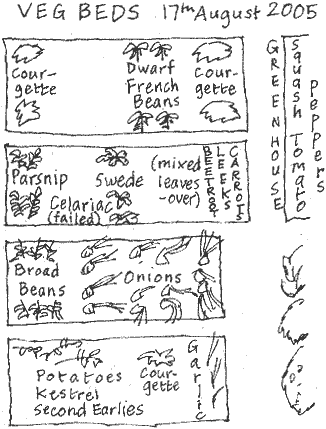 VEG BEDS 17th August 2005
Cour-
gette
Dwarf
French
Beans
Cour-
gette
GREENHOUSE
Squash Tomato
Peppers
Parsnip
Swede
(mixed
leaves
-over)
BEETROOT
LEEKS
CARROTS
Celariac
(failed)
Broad
Beans
Onions
Potatoes
Kestrel
Second Earlies
Cour-
gette
Garlic